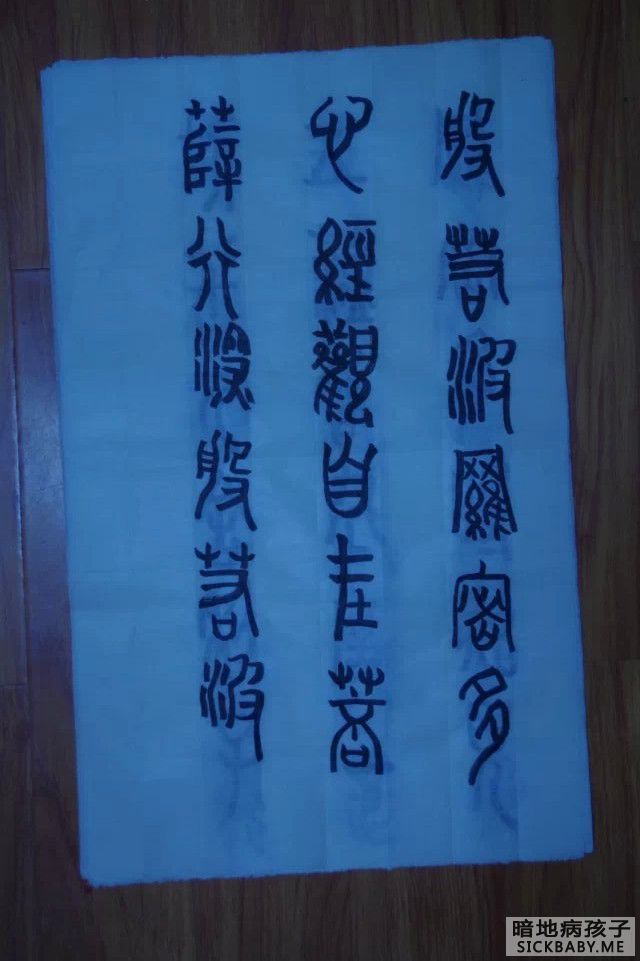 般若波羅密多
心經觀自在菩
薛行深般若波
暗地病孩子
SICKBABY.ME